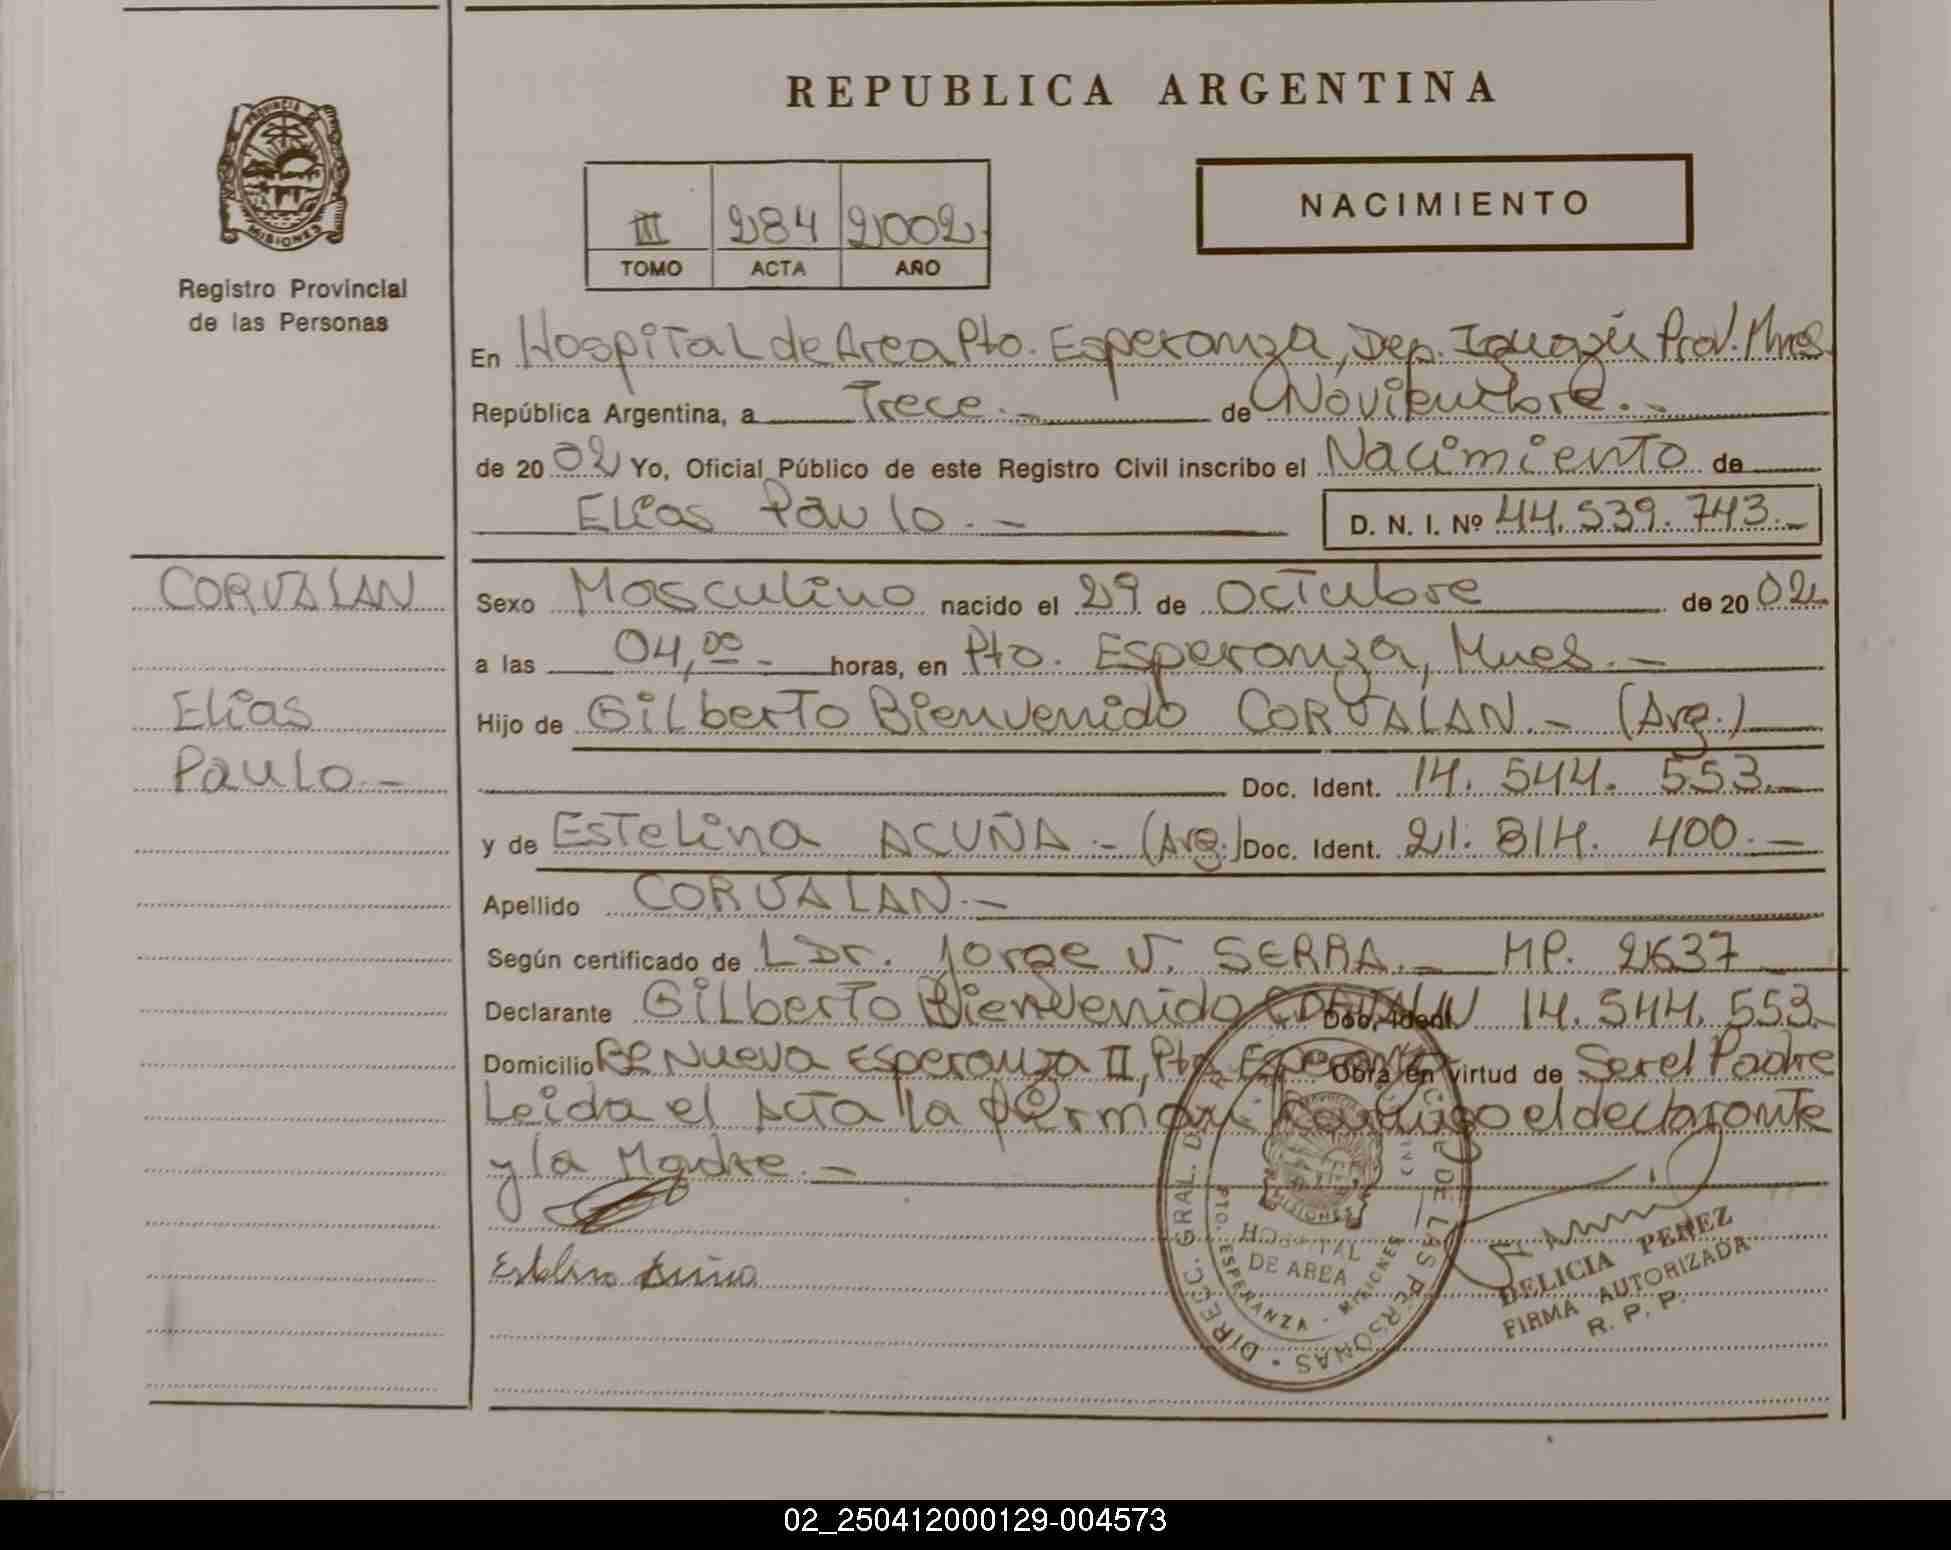 REPUBLICA ARGENTINA
PROVINCIA
MISIONES
Registro Provincial
de las Personas
III 284 2002
TOMO ACTA AÑO
NACIMIENTO
En Hospital de Area Pto. Esperanza, Dep. Iguazú Prov. Mnes.
República Argentina, a Trece.- de Noviembre.-
de 20 02 Yo, Oficial Público de este Registro Civil inscribo el Nacimiento de
Elías Paulo.- D. N. I. Nº 44.539.743.-
CORVALAN
Elías
Paulo.-
Sexo Masculino nacido el 29 de Octubre de 20 02
a las 04,00.- horas, en Pto. Esperanza, Mnes.-
Hijo de Gilberto Bienvenido CORVALAN.- (Arg.)
Doc. Ident. 14. 544. 553.-
y de Estelina ACUÑA.- (Arg.) Doc. Ident. 21. 814. 400.-
Apellido CORVALAN.-
Según certificado de Dr. Jorge V. SERRA.- MP. 2637
Declarante Gilberto Bienvenido CORVALAN Doc. Ident. 14. 544. 553.-
Domicilio Bº Nueva Esperanza II, Pto. Esperanza Obra en virtud de Ser el Padre
Leida el Acta la firman Conmigo el declarante
y la Madre.-
Estelina Acuña
DIRECC. GRAL. DE LAS PERSONAS
HOSPITAL
DE AREA
PTO. ESPERANZA - MISIONES
DELICIA PEREZ
FIRMA AUTORIZADA
R. P. P.
02_250412000129-004573